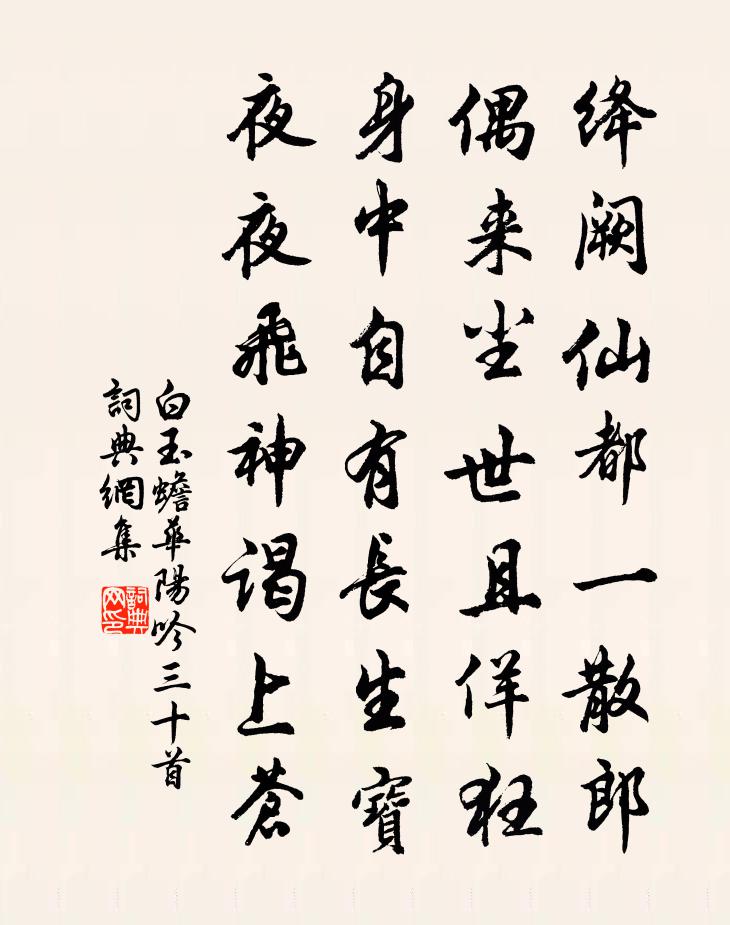 绛阙仙都一散郎
偶来尘世且佯狂
身中自有長生寶
夜夜飛神谒上蒼
白玉蟾華陽吟三十首
詞典網集
詞典网印